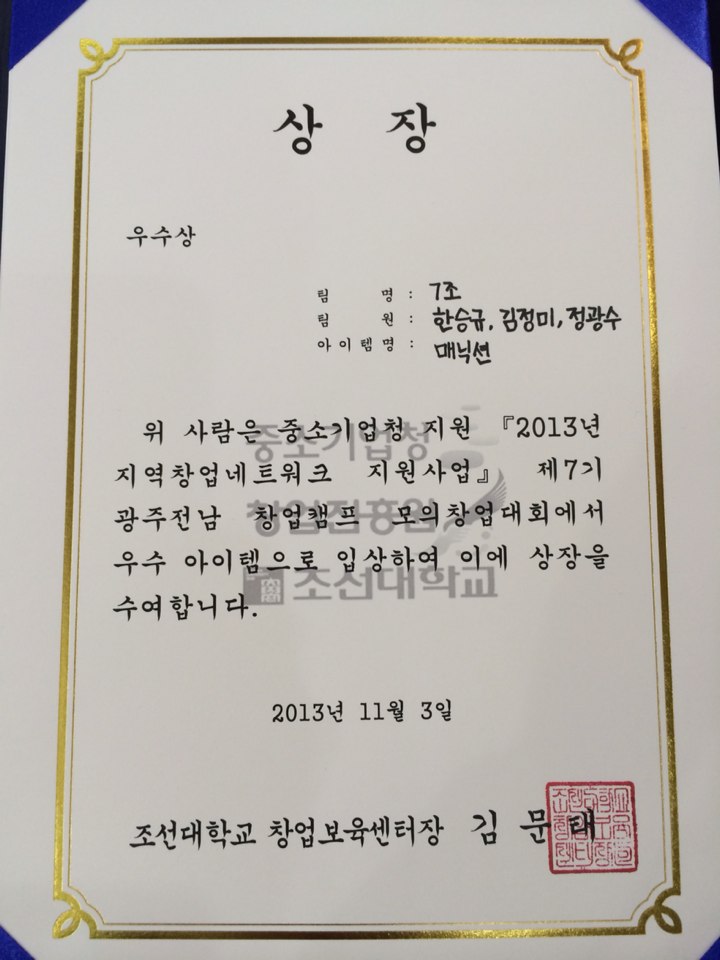 상 장
우수상
팀 명 : 7조
팀 원 : 한승규, 김정미, 정광수
아이템명 : 매닉션
위 사람은 중소기업청 지원 『2013년
지역창업네트워크 지원사업』 제7기
광주전남 창업캠프 모의창업대회에서
우수 아이템으로 입상하여 이에 상장을
수여합니다.
중소기업청
창업진흥원
조선대학교
2013년 11월 3일
조선대학교 창업보육센터장 김 문 태